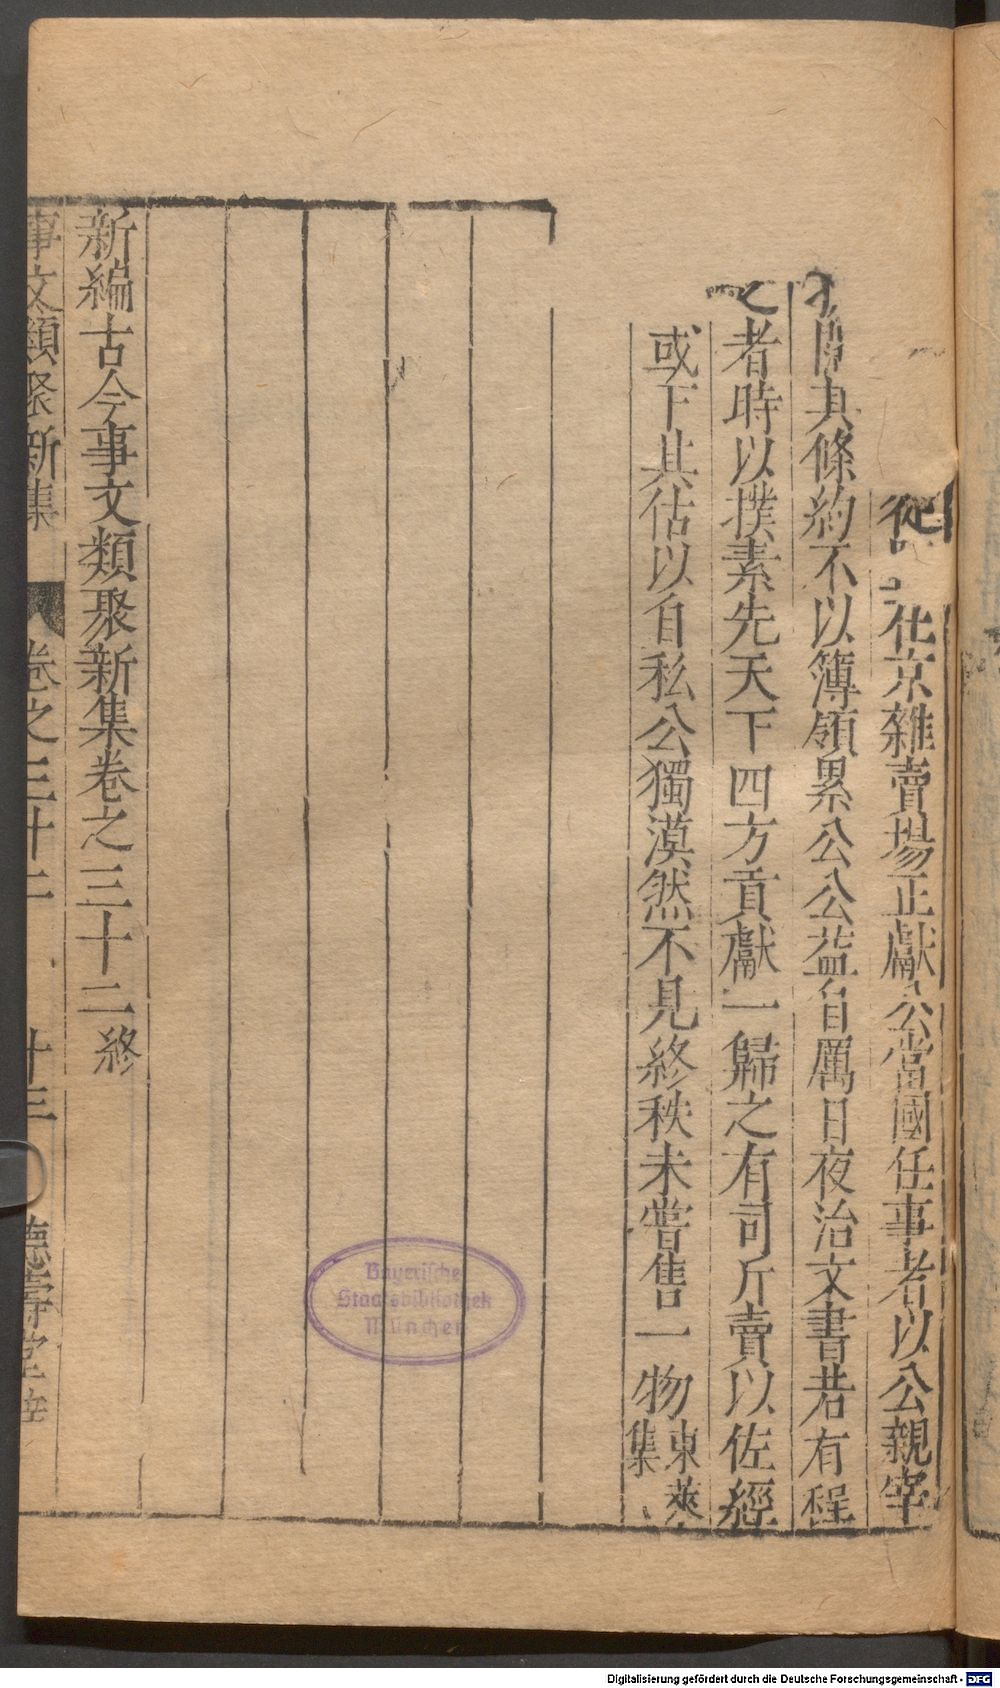 從
在京雜賣場正獻公當國任事者以公親宰
其條約不以簿領累公公益自厲日夜治文書若有程
者時以撲素先天下四方貢獻一歸之有司斤賣以佐經
或下其估以自私公獨漠然不見終秩未嘗售一物東萊集
新編古今事文類聚新集卷之三十二終
事文類聚新集 卷之三十二 十三 德壽堂梓
Bayerische
Staatsbibliothek
München
Digitalisierung gefördert durch die Deutsche Forschungsgemeinschaft - DFG